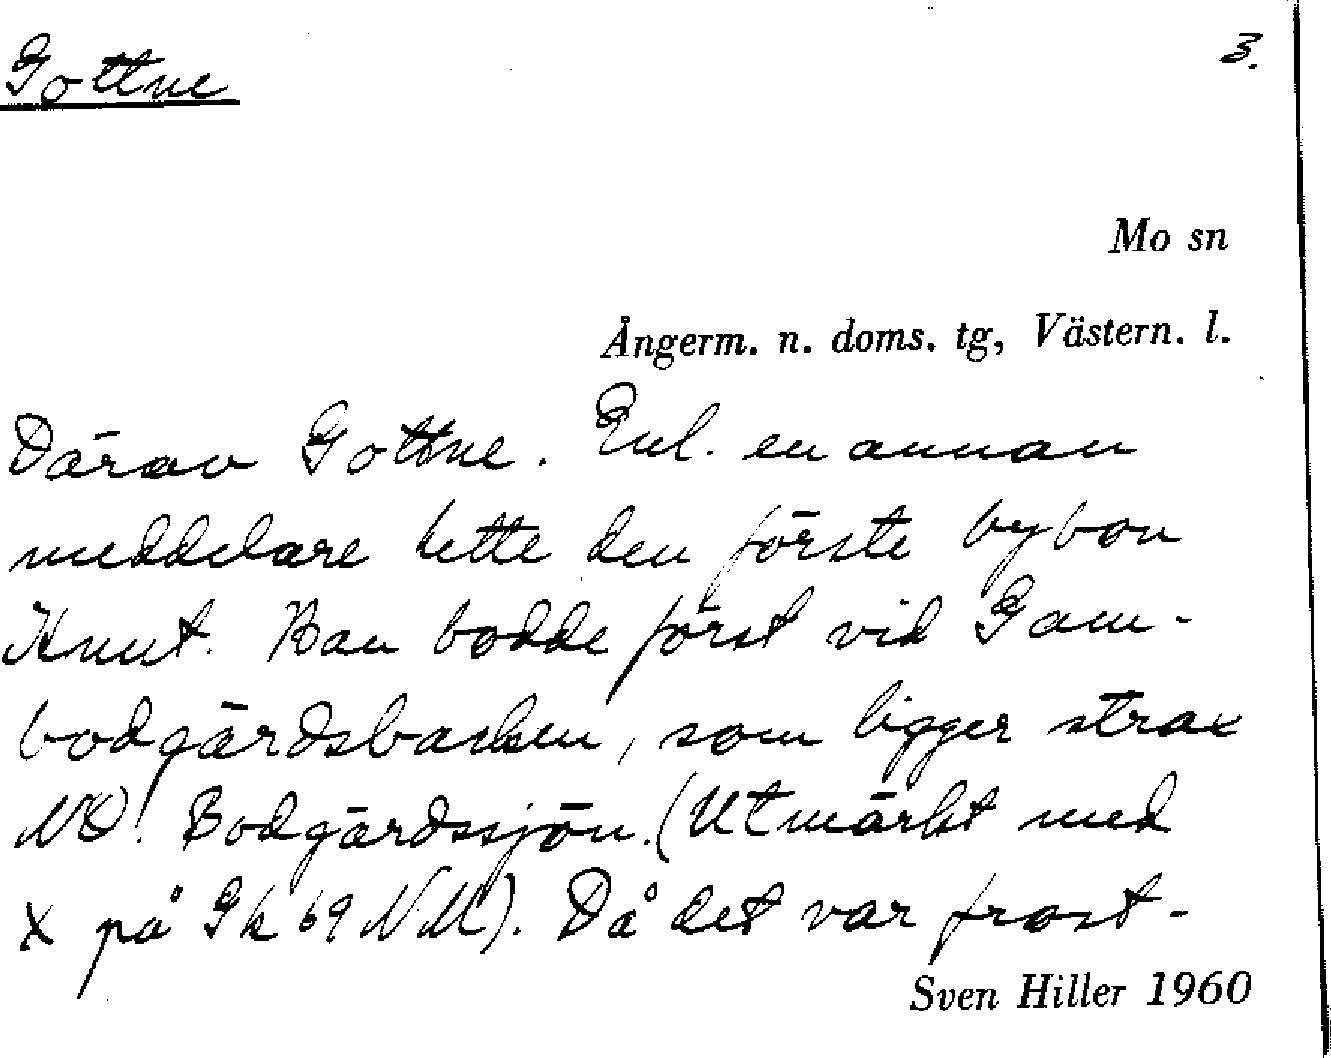 Gottne
3.
Mo sn
Ångerm. n. doms. tg, Västern. l.
Därav Gottne. Enl. en annan
meddelare hette den förste bybon
Knut. Han bodde först vid Gam-
bodgärdsbacken, som ligger strax
NO! Bodgärdssjön. (Utmärkt med
X på Gk 69 NM). Då det var frost-
Sven Hiller 1960